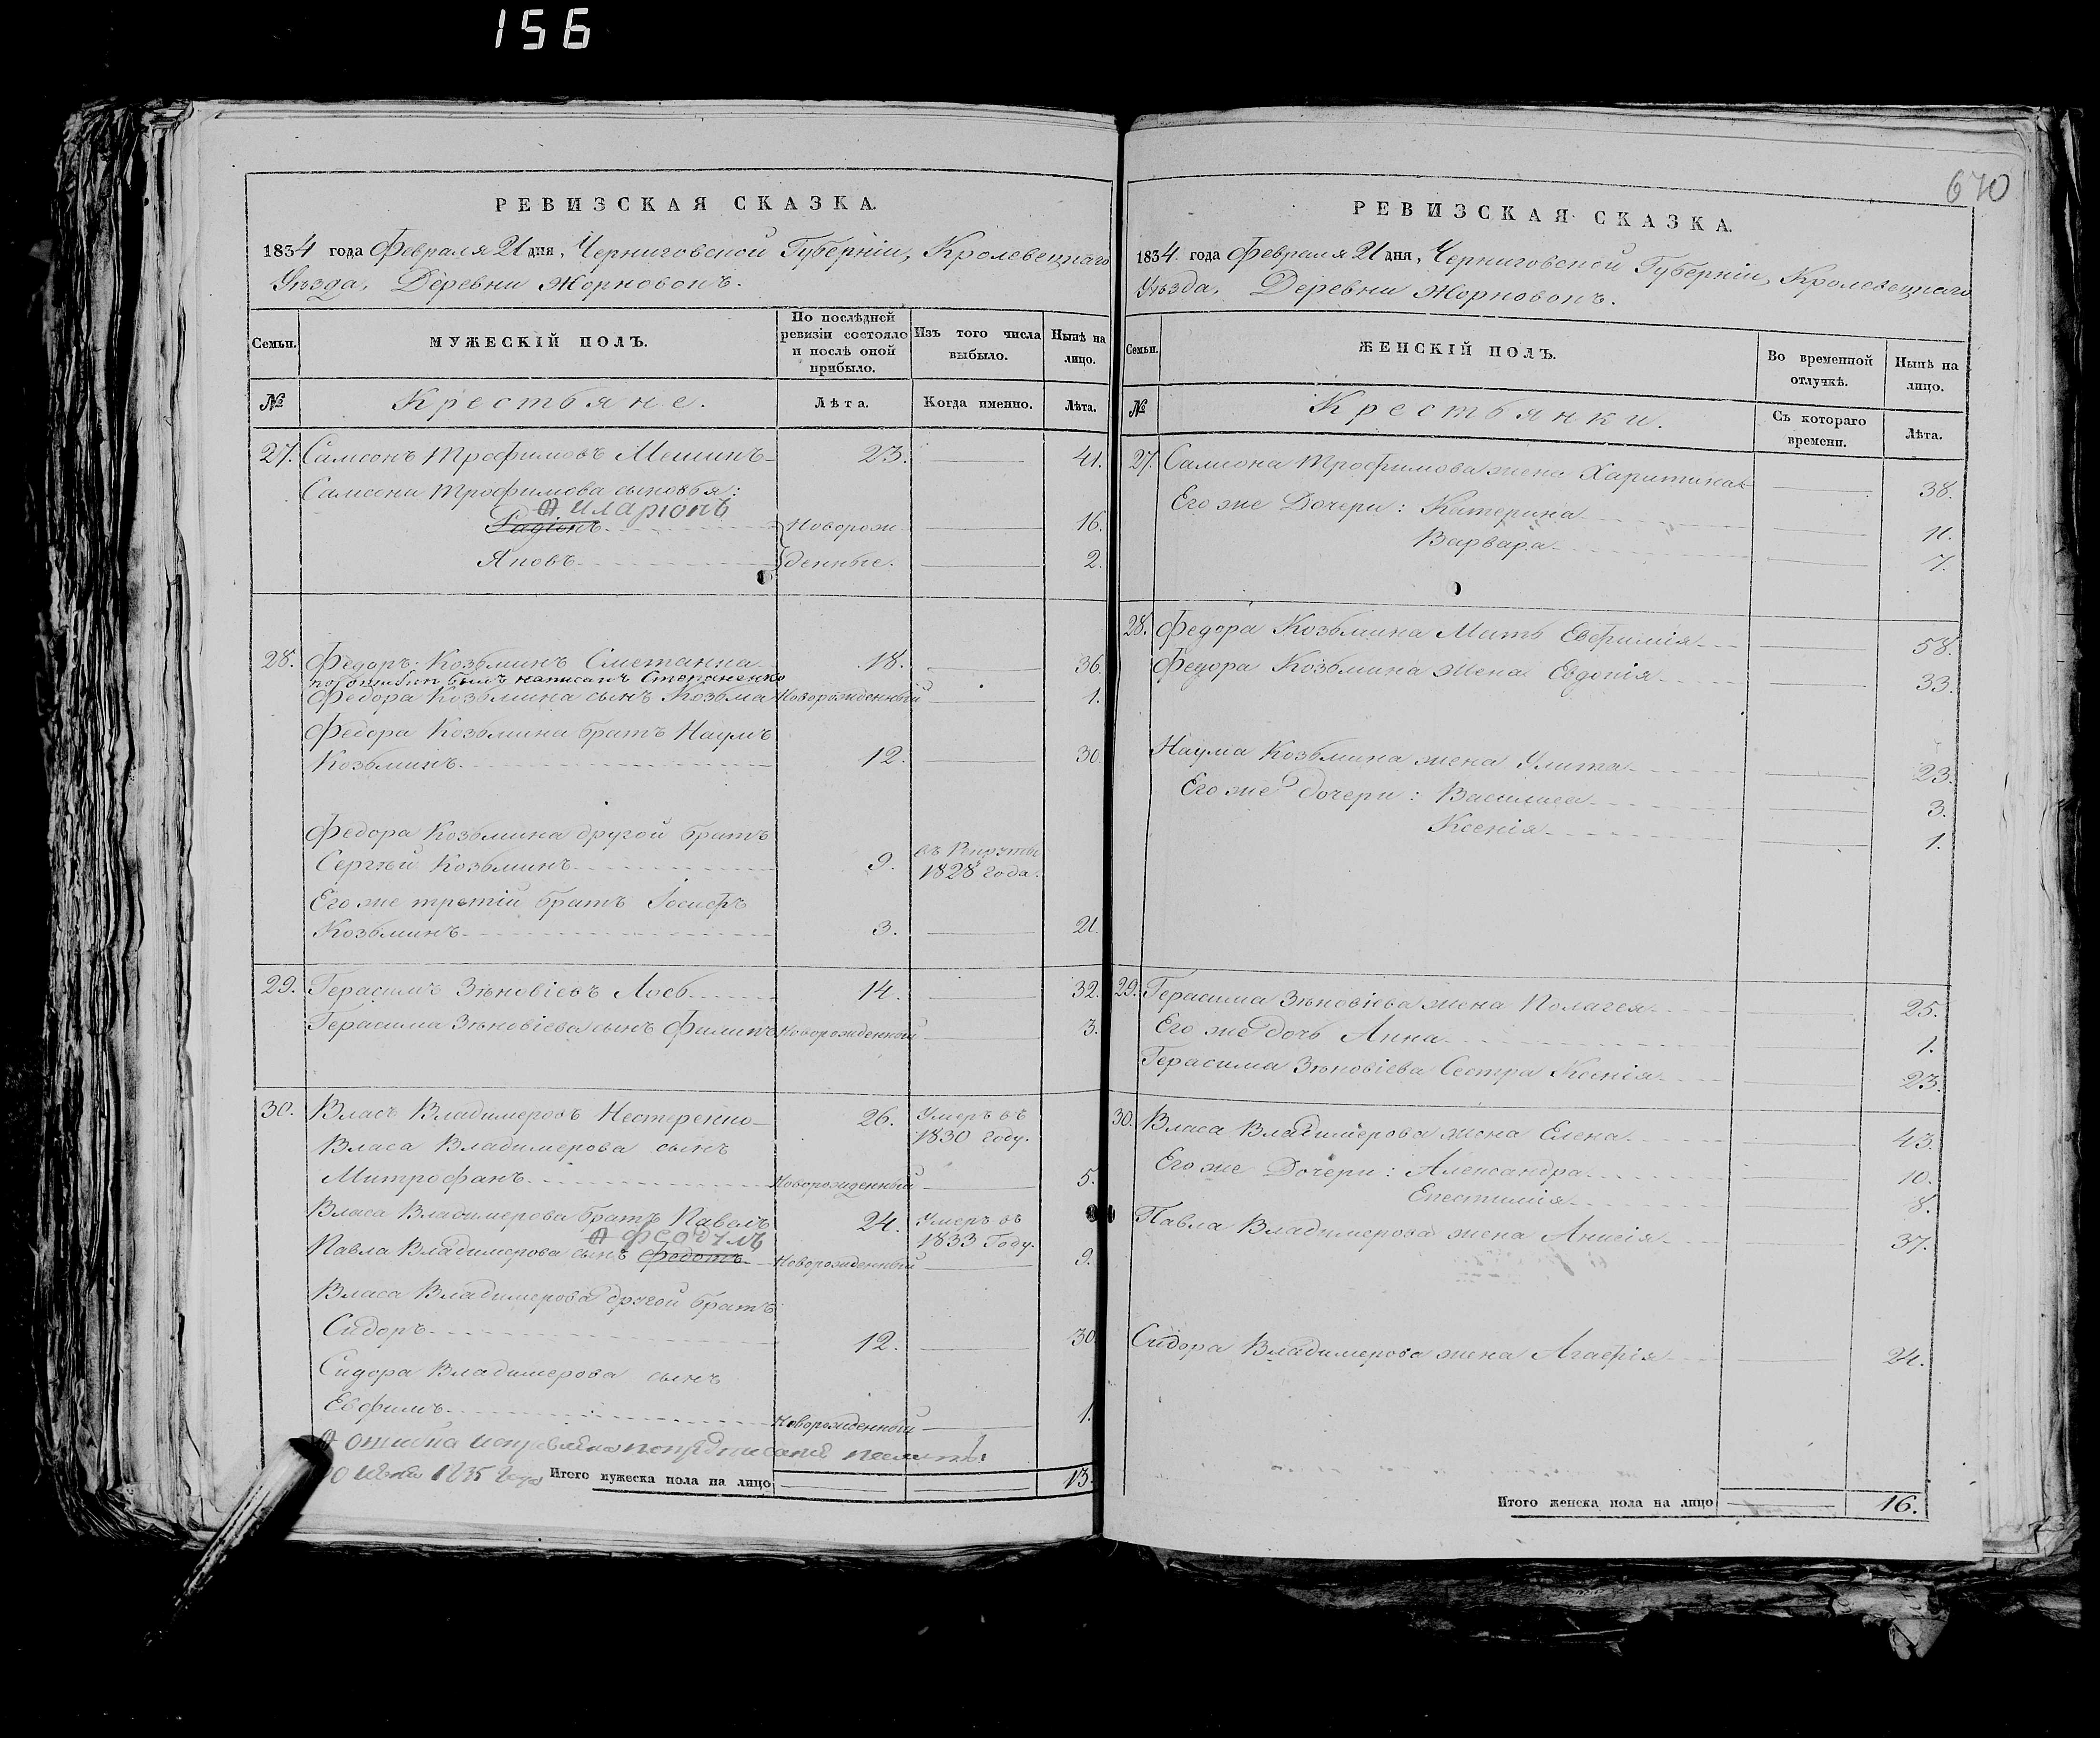 156
670
РЕВИЗСКАЯ СКАЗКА.
1834 года Февраля 21 дня, Черниговской Губерніи, Кролевецкаго
Уѣзда, Деревни Жорновокъ.
Семьи.
МУЖЕСКІЙ ПОЛЪ.
По послѣдней ревизіи состояло и послѣ оной прибыло.
Изъ того числа выбыло.
Нынѣ на лицо.
№
Крестьяне.
Лѣта.
Когда именно.
Лѣта.
27. Самсонъ Трофимовъ Мешинъ 23. 41.
Самсона Трофимова сыновья:
Иларіонъ
Новорож 16.
Яковъ денные. 2.
28. Федоръ Козьминъ Сметанка 18. 36.
былъ написанъ Степаненко
Федора Козьмина сынъ Козьма Новорожденный 1.
Федора Козьмина братъ Наумъ
Козьминъ 12. 30.
Федора Козьмина другой братъ
Сергѣй Козьминъ 9. въ Рекруты
1828 года.
Его же третій братъ Іосифъ
Козьминъ 3. 21.
29. Герасимъ Зѣновіевъ Лось 14. 32.
Герасима Зѣновіева сынъ Филипъ Новорожденный 3.
30. Власъ Владимеровъ Нестеренко 26. Умеръ въ
1830 году.
Власа Владимерова сынъ
Митрофанъ Новорожденный 5.
Власа Владимерова братъ Павелъ 24. Умеръ въ
1833 Году.
Феодулъ
Павла Владимерова сынъ Федотъ Новорожденный 9.
Власа Владимерова другой братъ
Сидоръ 12. 30.
Сидора Владимерова сынъ
Евфимъ Новорожденный 1.
ошибка исправлена
1835 года
Итого мужеска пола на лицо 13.
РЕВИЗСКАЯ СКАЗКА.
1834. года Февраля 21 дня, Черниговской Губерніи, Кролевецкаго
Уѣзда, Деревни Жорновокъ.
Семьи.
ЖЕНСКІЙ ПОЛЪ.
Во временной отлучкѣ.
Нынѣ на лицо.
№
Крестьянки.
Съ котораго времени.
Лѣта.
27. Самсона Трофимова жена Харитина 38.
Его же Дочери: Катерина 11.
Варвара 7.
28. Федора Козьмина Мать Евфимія 58.
Федора Козьмина жена Евдокія 33.
Наума Козьмина жена Улита 23.
Его же дочери: Василиса 3.
Ксенія 1.
29. Герасима Зѣновіева жена Пелагея 25.
Его же дочь Анна 1.
Герасима Зѣновіева Сестра Ксенія 23.
30. Власа Владимерова жена Елена 43.
Его же Дочери: Александра 10.
8.
Павла Владимерова жена Анисія 37.
Сидора Владимерова жена Агафія 24.
Итого женска пола на лицо 16.